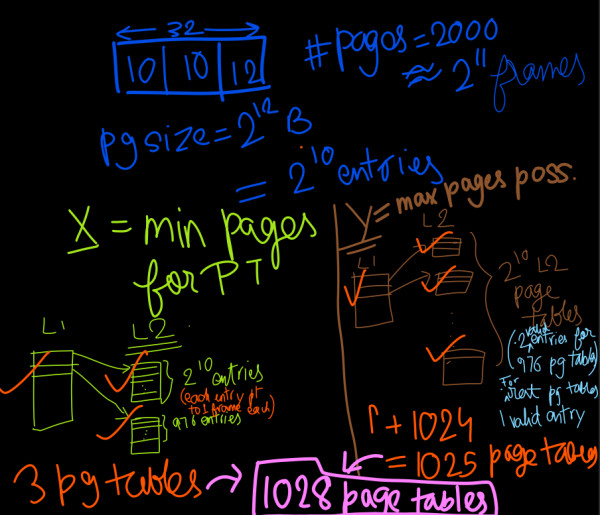 32
10 10 12
# pages = 2000
≈ 2^11 frames
pg size = 2^12 B
= 2^10 entries
X = min pages
for PT
L1 L2
2^10 entries
(each entry pt
to 1 frame each)
976 entries
3 pg tables →
Y = max pages poss.
L2
L1
2^10 L2
page
tables
(2 valid entries for
976 pg tables
For rest pg tables
1 valid entry
1 + 1024
= 1025 page tables
1028 page tables